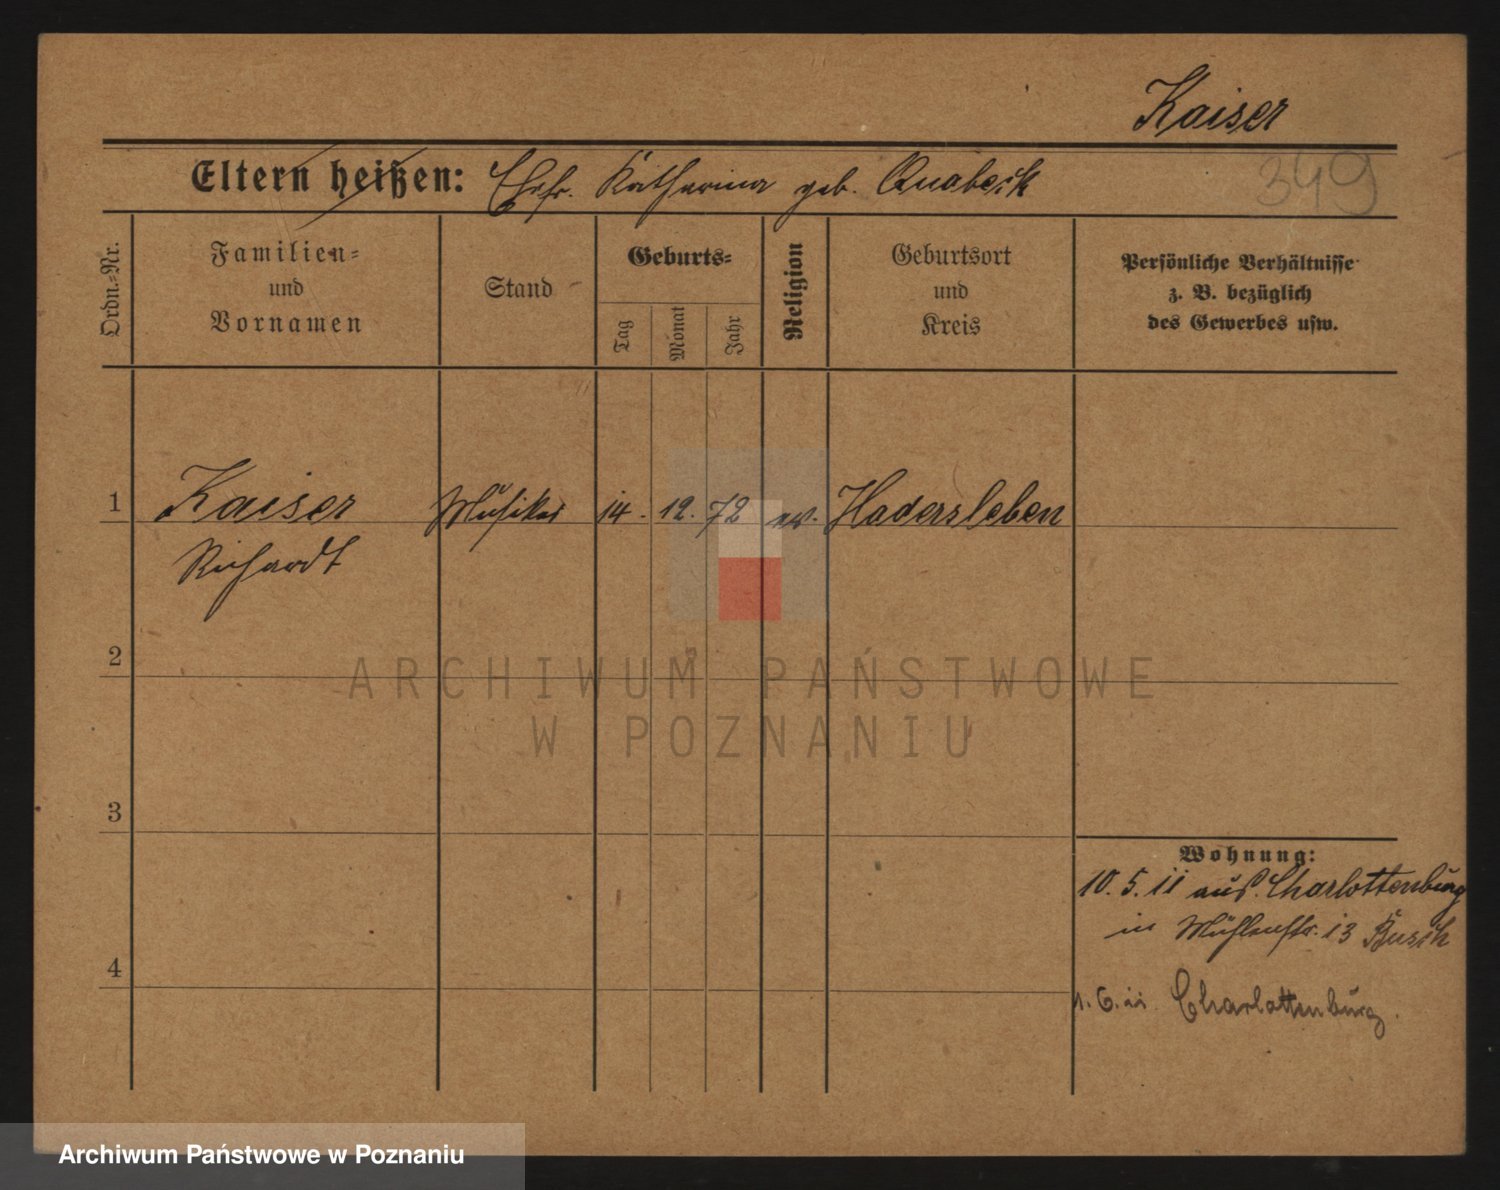 Kaiser
349
Eltern heißen: Ehefr. Katharina geb. Quabeck
Ordn.-Nr.
Familien-
und
Vornamen
Stand
Geburts-
Tag
Monat
Jahr
Religion
Geburtsort
und
Kreis
Persönliche Verhältnisse
z. B. bezüglich
des Gewerbes usw.
1 Kaiser Musiker 14. 12. 72 ev. Hadersleben
Richardt
2
3
4
Wohnung:
10. 5. 11 aus Charlottenburg
in Mühlenstr. 13 Busch
1. 6. 11 Charlottenburg.
ARCHIWUM PAŃSTWOWE
W POZNANIU
Archiwum Państwowe w Poznaniu